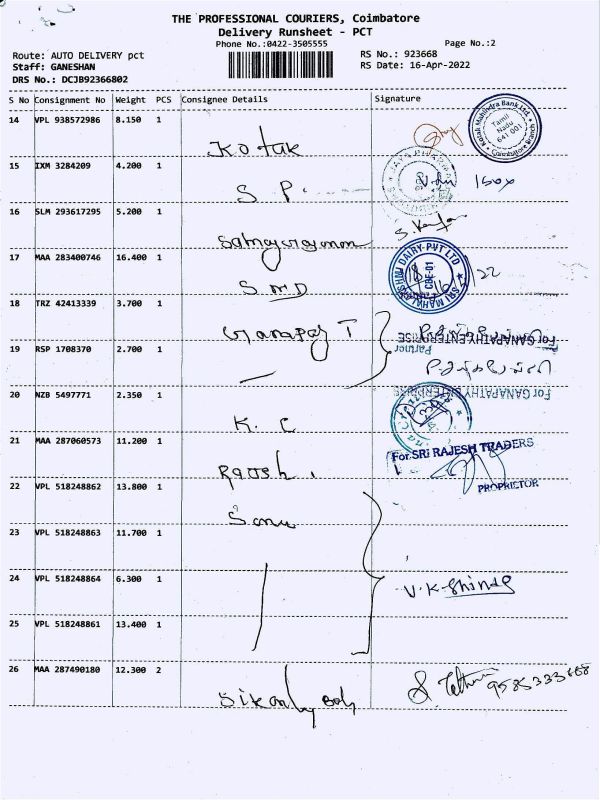 THE PROFESSIONAL COURIERS, Coimbatore
Delivery Runsheet - PCT
Phone No.:0422-3505555
Page No.:2
Route: AUTO DELIVERY pct
Staff: GANESHAN
DRS No.: DCJB92366802
RS No.: 923668
RS Date: 16-Apr-2022
S No Consignment No Weight PCS Consignee Details Signature
14 VPL 938572986 8.150 1 Kotak
Kotak Mahindra Bank Ltd.
Tamil
Nadu
641 001
Coimbatore Branch
15 IXM 3284209 4.200 1 S P.
16 SLM 293617295 5.200 1
17 MAA 283400746 16.400 1 SMD
SRI MAHALAKSHMI DAIRY PVT LTD
CBE-01
22
18 TRZ 42413339 3.700 1 T
For GANAPATHY ENTERPRISE
Partner
19 RSP 1708370 2.700 1
For GANAPATHY ENTERPRISE
20 NZB 5497771 2.350 1 K. C
21 MAA 287060573 11.200 1
For SRI RAJESH TRADERS
PROPRIETOR
22 VPL 518248862 13.800 1
23 VPL 518248863 11.700 1
24 VPL 518248864 6.300 1
V.K.
25 VPL 518248861 13.400 1
26 MAA 287490180 12.300 2